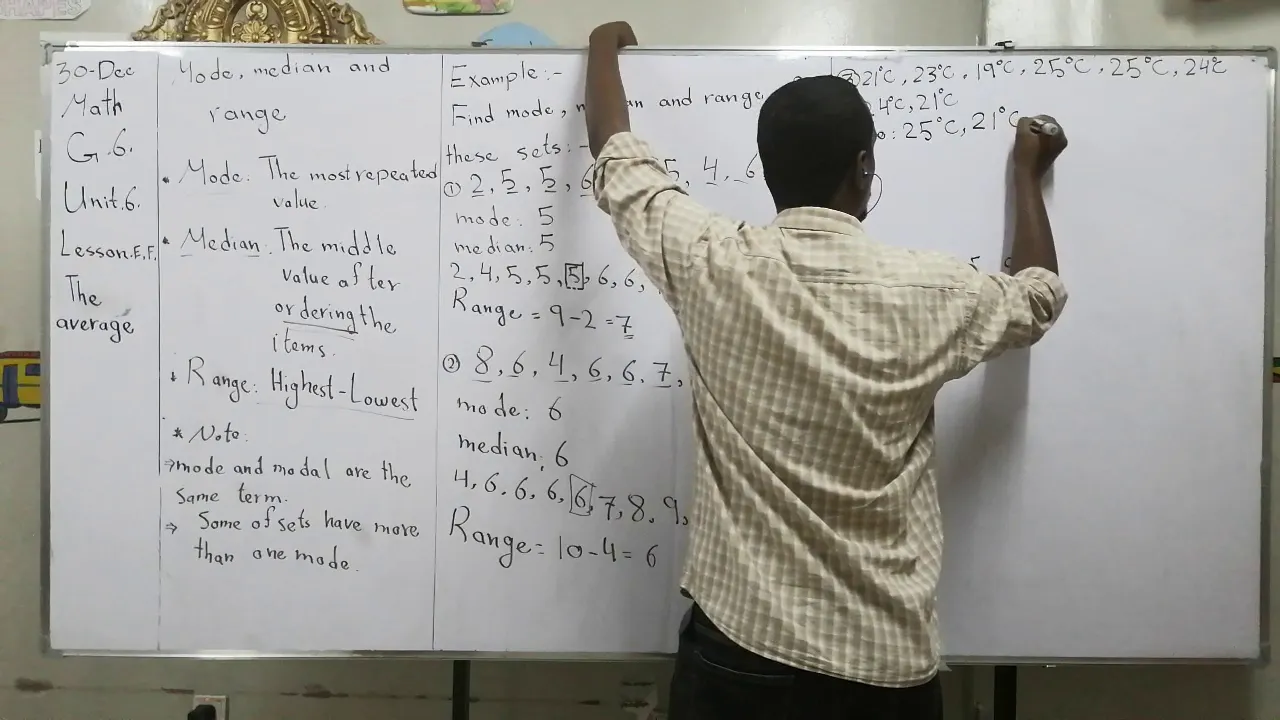 30-Dec
Math
G.6.
Unit.6.
Lesson.E,F.
The
average
Mode, median and
range
• Mode: The most repeated
value.
• Median: The middle
value after
ordering the
items.
• Range: Highest-Lowest
* Note:
⇒mode and modal are the
same term.
⇒ Some of sets have more
than one mode.
Example:-
Find mode, and range
these sets:-
① 2, 5, 5, 6 5, 4, 6
mode: 5
median: 5
2, 4, 5, 5, 5, 6, 6,
Range = 9-2 =7
② 8, 6, 4, 6, 6, 7,
mode: 6
median: 6
4, 6, 6, 6, 6, 7, 8, 9,
Range = 10-4 = 6
③ 21°C, 23°C, 19°C, 25°C, 25°C, 24°C
4°C, 21°C
: 25°C, 21°C